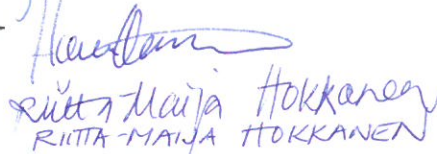 Riitta-Maija Hokkanen
RIITTA-MAIJA HOKKANEN